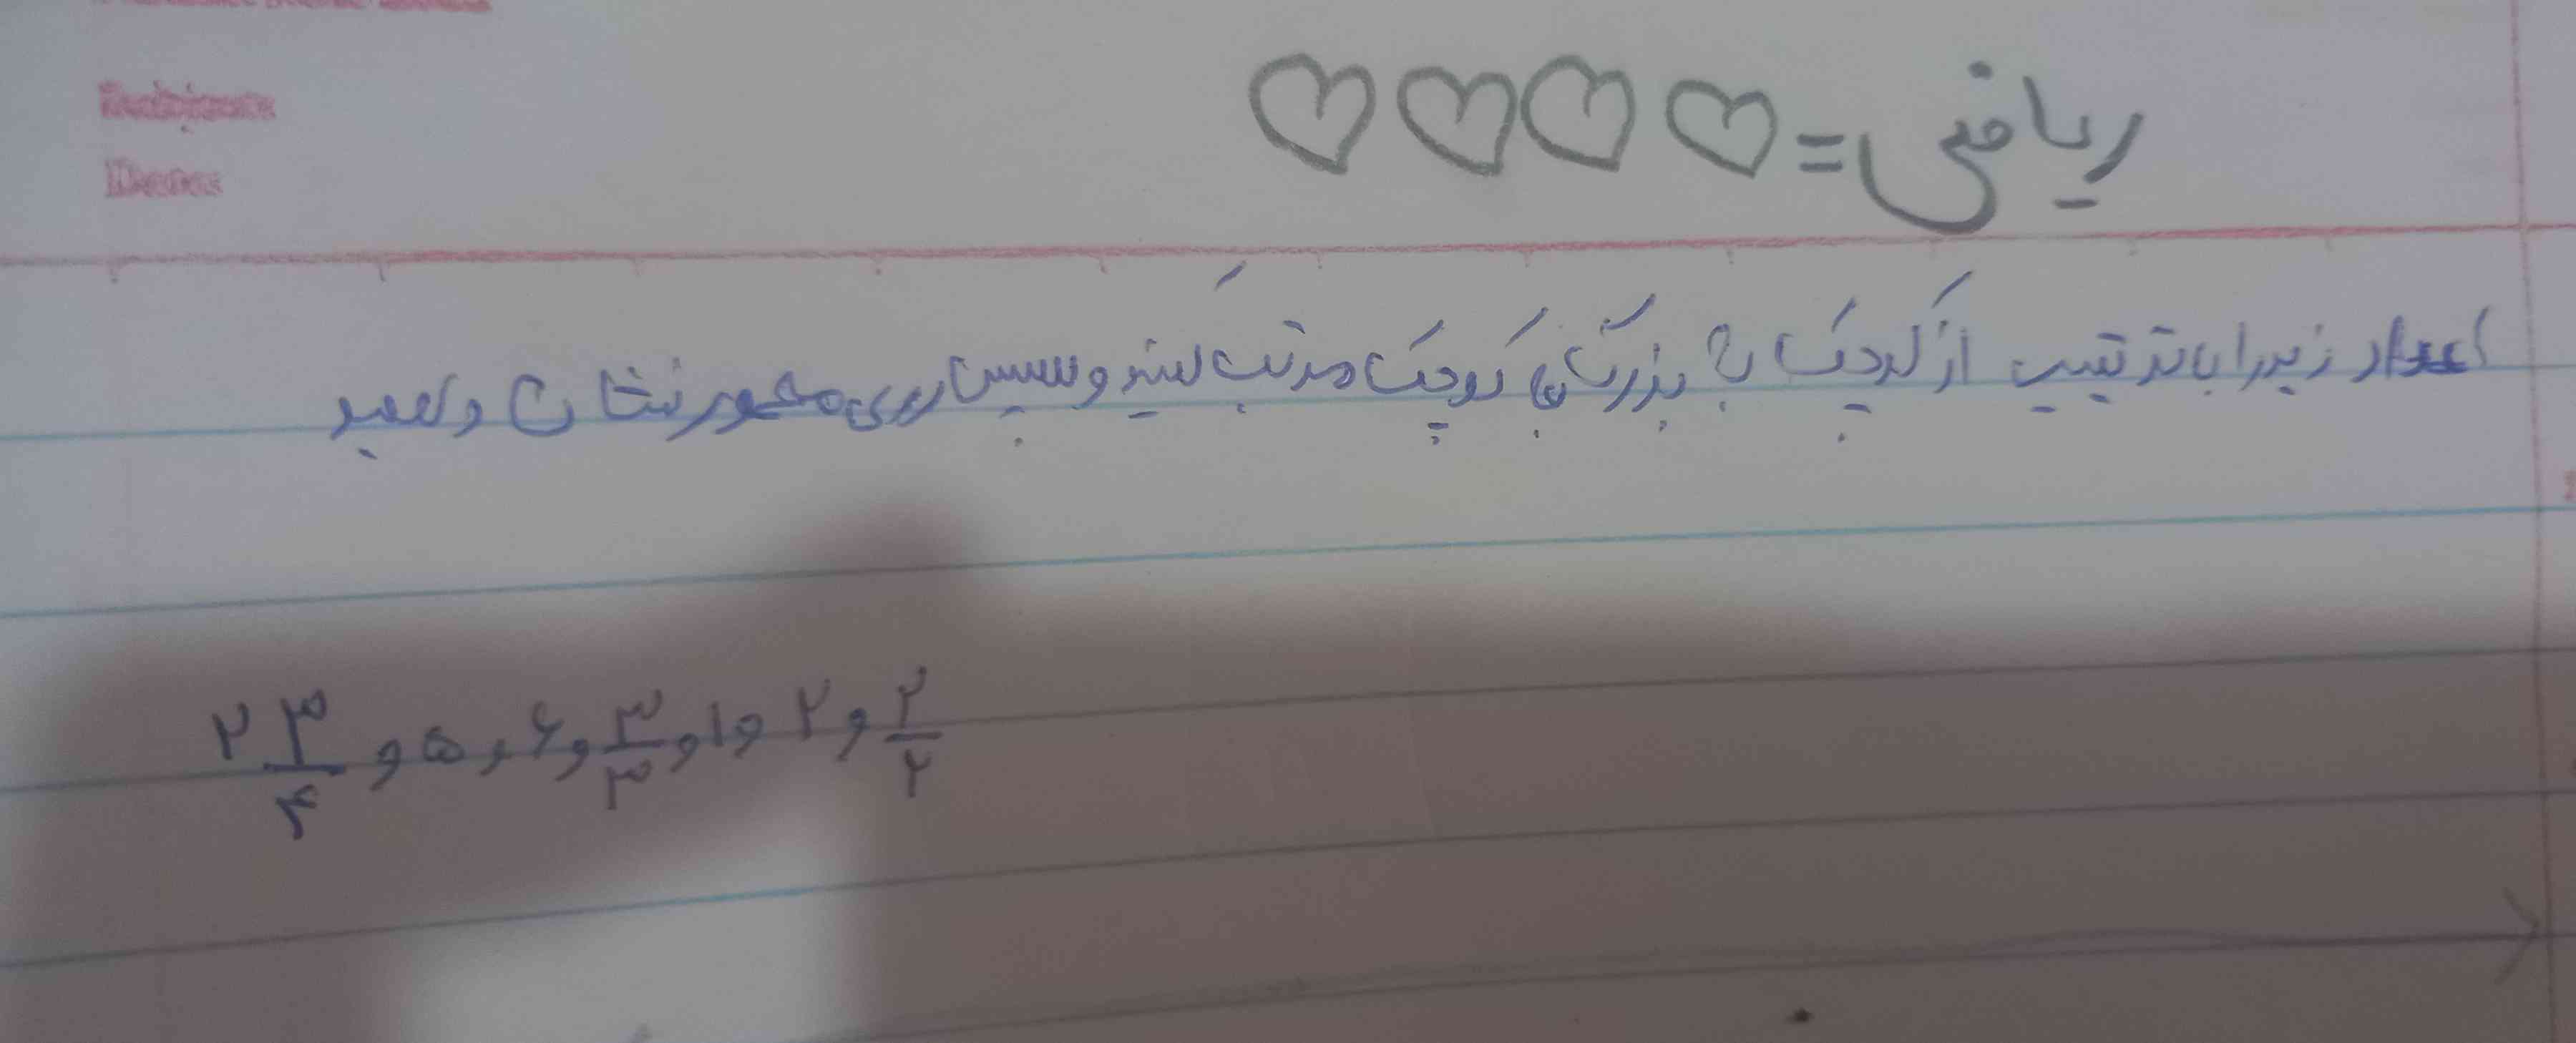 Subject:
Date:
ریاضی = ♡♡♡♡
اعداد زیر را با ترتیب از کوچک به بزرگ یا کوچک مرتب کنید و سپس روی محور نشان دهید
۲/۲ و ۲ و ۱ و ۳/۳ و ۶ و ۵ و ۲ ۳/۴